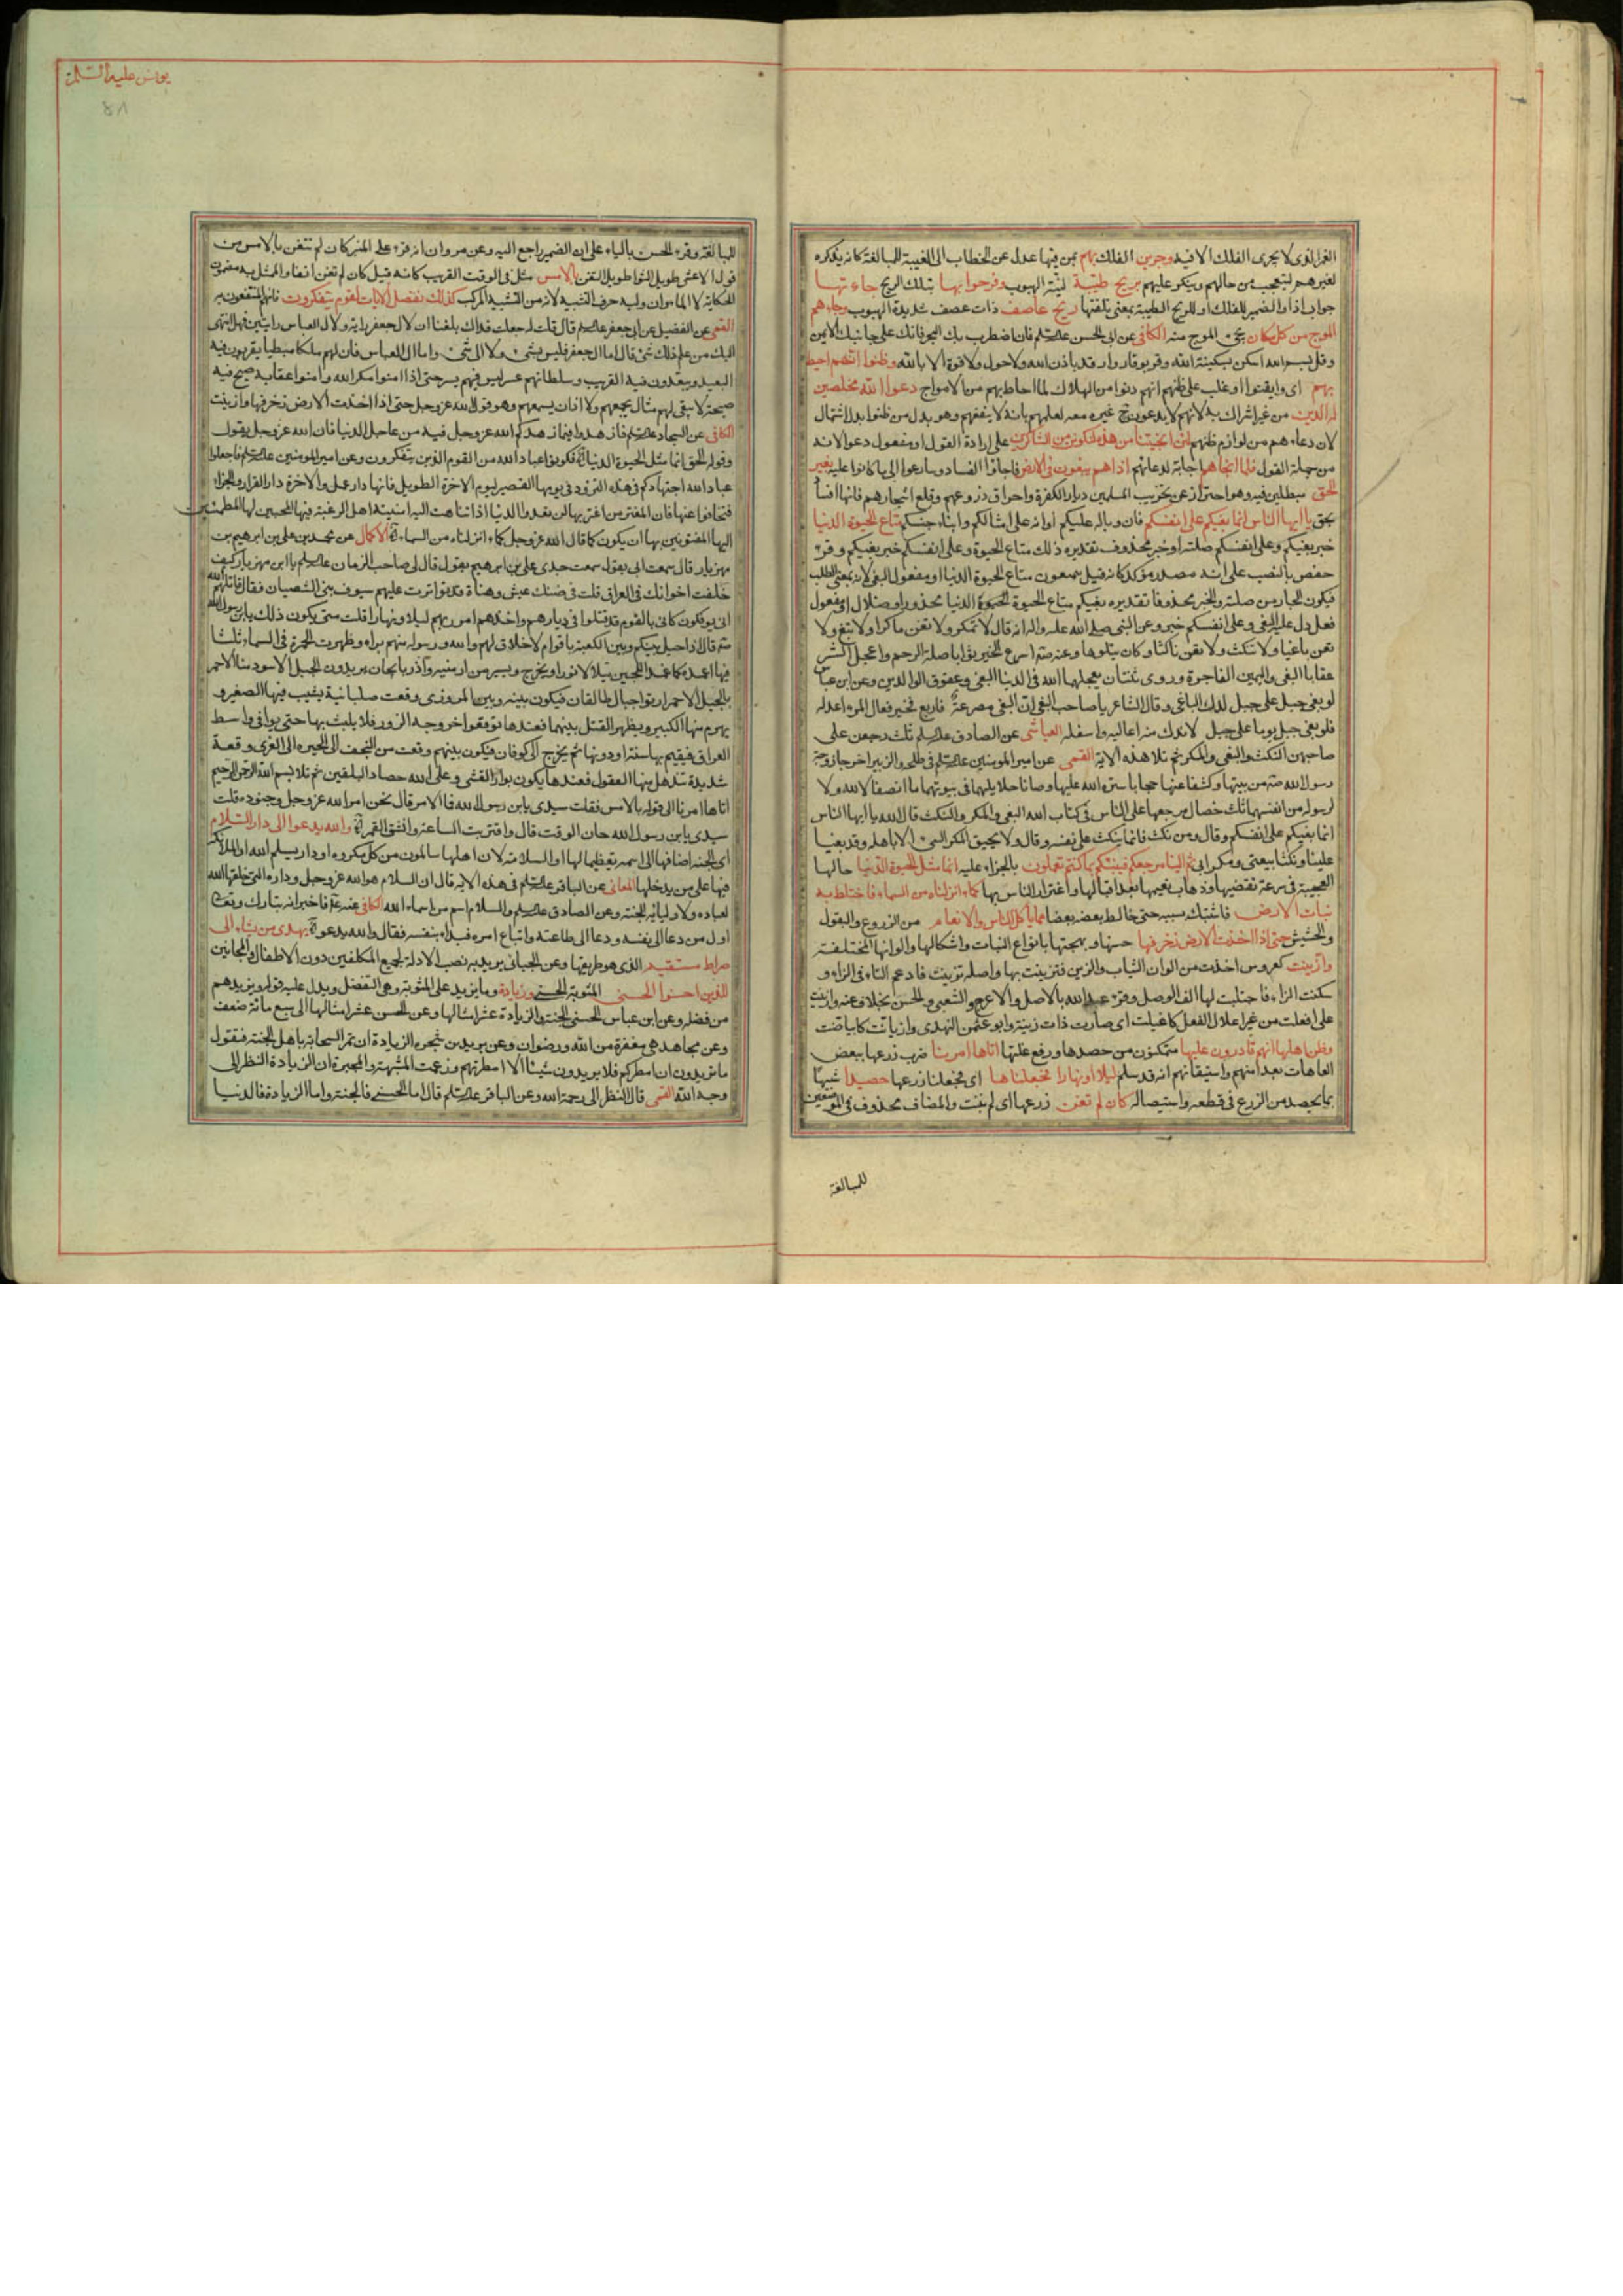 الغر الذى لا يجرى الفلك الا فيه وجرين الفلك بهم بمن فيها عدل عن الخطاب الى الغيبة للمبالغة كانه يذكره
لغيرهم لتعجيبه من حالهم وينكر عليهم بريح طيبة لينة الهبوب وفرحوا بها بتلك الريح جاءتها
جواب اذا والضمير للفلك او للريح الطيبة بمعنى تلقتها ريح عاصف ذات عصف شديدة الهبوب وجاءهم
الموج من كل مكان يجئ الموج منه الكافى عن ابى الحسن علیه السلم فان اضطرب بك البحر فاتك على جانبك الايمن
وقل بسم الله اسكن بسكينة الله وقر بوقار الله واهد باذن الله ولا حول ولا قوة الا بالله وظنوا انهم احيط
بهم اى وايقنوا او غلب على ظنهم انهم دنوا من الهلاك لما احاط بهم من الامواج دعوا الله مخلصين
له الدين من غير اشراك به لانهم لا يدعون ح غيره معه لعلمهم بانه لا ينفعهم وهو بدل من ظنوا بدل اشتمال
لان دعاءهم من لوازم ظنهم لئن انجيتنا من هذه لنكونن من الشاكرين على ارادة القول او مفعول دعوا لانه
من جملة القول فلما انجاهم اجابة لدعائهم اذا هم يبغون فى الارض فاجاؤا الفساد وسارعوا الى ما كانوا عليه بغير
الحق مبطلين فيه وهو احتراز عن تخريب المسلمين ديار الكفرة واحراق زروعهم وقلع اشجارهم فانها افساد
بحق يا ايها الناس انما بغيكم على انفسكم فان وباله عليكم او انه على امثالكم وابناء جنسكم متاع الحيوة الدنيا
خبر بغيكم وعلى انفسكم صلته او خبر محذوف تقديره ذلك متاع الحيوة وعلى انفسكم خبر بغيكم وقرء
حفص بالنصب على انه مصدر مؤكد كانه قيل يتمتعون متاع الحيوة الدنيا او مفعول البغى لانه بمعنى الطلب
فيكون الجار من صلته والخبر محذوفا تقديره بغيكم متاع الحيوة الدنيا محذور او ضلال او مفعول
فعل دل عليه البغى وعلى انفسكم خبره وعن النبى صلى الله عليه واله انه قال لا تمكر ولا تعن ماكرا ولا تبغ ولا
تعن باغيا ولا تنكث ولا تعن ناكثا وكان يتلوها وعنه صم اسرع الخير ثوابا صلة الرحم واعجل الشر
عقابا البغى واليمين الفاجرة وروى ثنتان يعجلهما الله فى الدنيا البغى وعقوق الوالدين وعن ابن عباس
لو بغى جبل على جبل لدك الباغى وقال الشاعر يا صاحب البغى ان البغى مصرعة فاربع فخير فعال المرء اعدله
فلو بغى جبل يوما على جبل لاندك منه اعاليه واسفله العياشى عن الصادق علیه السلم ثلث رجعن على
صاحبهن النكث والبغى والمكر ثم تلا هذه الاية القمى عن امير المومنين علیه السلم فى طلحة والزبير اخرجا زوجة
رسول الله صم من بيتها وكشفا عنها حجابا ستره الله عليها وصانا حلايلهما فى بيوتهما ما انصفا لا لله ولا
لرسوله من انفسهما ثلث خصال مرجعها على الناس فى كتاب الله البغى والمكر والنكث قال الله يا ايها الناس
انما بغيكم على انفسكم وقال ومن نكث فانما ينكث على نفسه وقال ولا يحيق المكر السئ الا باهله وقد بغيا
علينا ونكثا بيعتى ومكرا بى ثم الينا مرجعكم فننبئكم بما كنتم تعملون بالجزاء عليه انما مثل الحيوة الدنيا حالها
العجيبة فى سرعة تقضيها وذهاب نعيمها بعد اقبالها واغترار الناس بها كماء انزلناه من السماء فاختلط به
نبات الارض فاشتبك بسببه حتى خالط بعضه بعضا مما ياكل الناس والانعام من الزروع والبقول
والحشيش حتى اذا اخذت الارض زخرفها حسنها وبهجتها بانواع النبات واشكالها والوانها المختلفة
وازينت كعروس اخذت من الوان الثياب والزين فتزينت بها واصله تزينت فادغم التاء فى الزاء و
سكنت الزاء فاجتلبت لها الف الوصل وقرء عبد الله بالاصل والاعرج والشعبى والحسن بخلاف عنه وازينت
على افعلت من غير اعلال الفعل كاغيلت اى صارت ذات زينة وابو عثمن النهدى وازيانت كابياضت
وظن اهلها انهم قادرون عليها متمكنون من حصدها ورفع غلتها اتاها امرنا ضرب زرعها ببعض
العاهات بعد امنهم واستيقانهم انه قد سلم ليلا او نهارا فجعلناها اى فجعلنا زرعها حصيدا شبيها
بما يحصد من الزرع فى قطعه واستيصاله كان لم تغن زرعها اى لم ينبت والمضاف محذوف فى الموضعين
للمبالغة
يونس عليه السلام
٥٨
للمبالغة وقرء الحسن بالياء على ان الضمير راجع اليه وعن مروان انه قرء على المنبر كان لم تتغن بالامس من
قول الاعشى طويل الثوا طويل التغن بالامس مثل فى الوقت القريب كانه قيل كان لم تغن انفا والممثل به مضمون
الحكاية لا الماء وان وليه حرف التشبيه لانه من التشبيه المركب كذلك نفصل الايات لقوم يتفكرون فانهم المنتفعون به
القمى عن الفضيل عن ابى جعفر علیه السلم قال قلت له جعلت فداك بلغنا ان لال جعفر راية ولال العباس رايتين فهل انتهى
اليك من علم ذلك شئ قال اما ال جعفر فليس بشئ ولا الى شئ واما ال العباس فان لهم ملكا مبطيا يقربون فيه
البعيد ويبعدون فيه القريب وسلطانهم عسر ليس فيهم يسر حتى اذا امنوا مكر الله وامنوا عقابه صيح فيه
صيحة لا يبقى لهم منال يجمعهم ولا اذان يسمعهم وهو قول الله عز وجل حتى اذا اخذت الارض زخرفها وازينت
الكافى عن السجاد علیه السلم فازهدوا فيما زهدكم الله عز وجل فيه من عاجل الدنيا فان الله عز وجل يقول
وقوله الحق انما مثل الحيوة الدنيا الآية فكونوا عباد الله من القوم الذين يتفكرون وعن امير المومنين علیه السلم فاجعلوا
عباد الله اجتهادكم فى هذه التزود فى يومها القصير ليوم الاخرة الطويل فانها دار عمل والاخرة دار القرار والجزاء
فتجافوا عنها فان المغتر من اغتر بها لن تعدوا الدنيا اذا تناهت اليه امنية اهل الرغبة فيها المحبين لها المطمئنين
اليها المفتونين بها ان يكون كما قال الله عز وجل كماء انزلناه من السماء الآية الاكمال عن محمد بن على بن ابراهيم بن
مهزيار قال سمعت ابى يقول سمعت جدى على بن ابرهيم يقول قال لى صاحب الزمان علیه السلم يا ابن مهزيار كيف
خلفت اخوانك فى العراق قلت فى ضنك عيش وهناة قد تواترت عليهم سيوف بنى الشصبان فقال قاتلهم الله
انى يوفكون كانى بالقوم قد قتلوا فى ديارهم واخذهم امر ربهم ليلا ونهارا قلت متى يكون ذلك يابن رسول الله
صم قال اذا حيل بينكم وبين الكعبة باقوام لا خلاق لهم والله ورسوله منهم براء وظهرت الحمرة فى السماء ثلثا
فيها اعمدة كاعمدة اللجين يتلالا نورا ويخرج ويسير من ارمنيه وآذربايجان يريدون الجبل الاسود متلاحم
بالجبل الاحمر لزيق جبال طالقان فيكون بينه وبين المروزى وقعت صلبانية يشيب فيها الصغير و
يهرم منها الكبير ويظهر القتل بينهما فعندها توقعوا خروجه الى الزورا فلا يلبث بها حتى يوافى واسط
العراق فيقيم بها سنة او دونها ثم يخرج الى كوفان فيكون بينهم وقعت من النجف الى الحيره الى الغرى وقعة
شديدة تذهل منها العقول فعندها يكون بوار الفئتين وعلى الله حصاد الباقين ثم تلا بسم الله الرحمن الرحيم
اتاها امرنا الى قوله بالامس فقلت سيدى يابن رسول الله فما الامر قال نحن امر الله عز وجل وجنوده قلت
سيدى يابن رسول الله حان الوقت قال واقتربت الساعة وانشق القمر الآية والله يدعوا الى دار السلام
اى الجنة اضافها الى اسمه تعظيما لها او السلامة لان اهلها سالمون من كل مكروه او دار يسلم الله او الملائكة
فيها على من يدخلها المعانى عن الباقر علیه السلم فى هذه الاية قال ان السلام هو الله عز وجل وداره التى خلقها الله
لعباده ولاوليائه الجنة وعن الصادق علیه السلم والسلام اسم من اسماء الله الكافى عنه ع فاخبر انه تبارك وتعالى
اول من دعا الى نفسه ودعا الى طاعته واتباع امره فبداء بنفسه فقال والله يدعو الآية يهدى من يشاء الى
صراط مستقيم الذى هو طريقها وعن الجبائى يريد به نصب الادلة لجميع المكلفين دون الاطفال والمجانين
للذين احسنوا الحسنى المثوبة الحسنى وزيادة وما يزيد على المثوبة وهى التفضل ويدل عليه قوله ويزيدهم
من فضله وعن ابن عباس الحسنى الجنة والزيادة عشر امثالها وعن الحسن عشر امثالها الى سبع مائة ضعف
وعن مجاهد هى مغفرة من الله ورضوان وعن يزيد بن شجره الزيادة ان تمر السحابة باهل الجنة فتقول
ما تريدون ان امطركم فلا يريدون شيئا الا امطرتهم وزعمت المشبهة والمجبرة ان الزيادة النظر الى
وجه الله القمى قال النظر الى رحمة الله وعن الباقر علیه السلم قال اما الحسنى فالجنة واما الزيادة فالدنيا